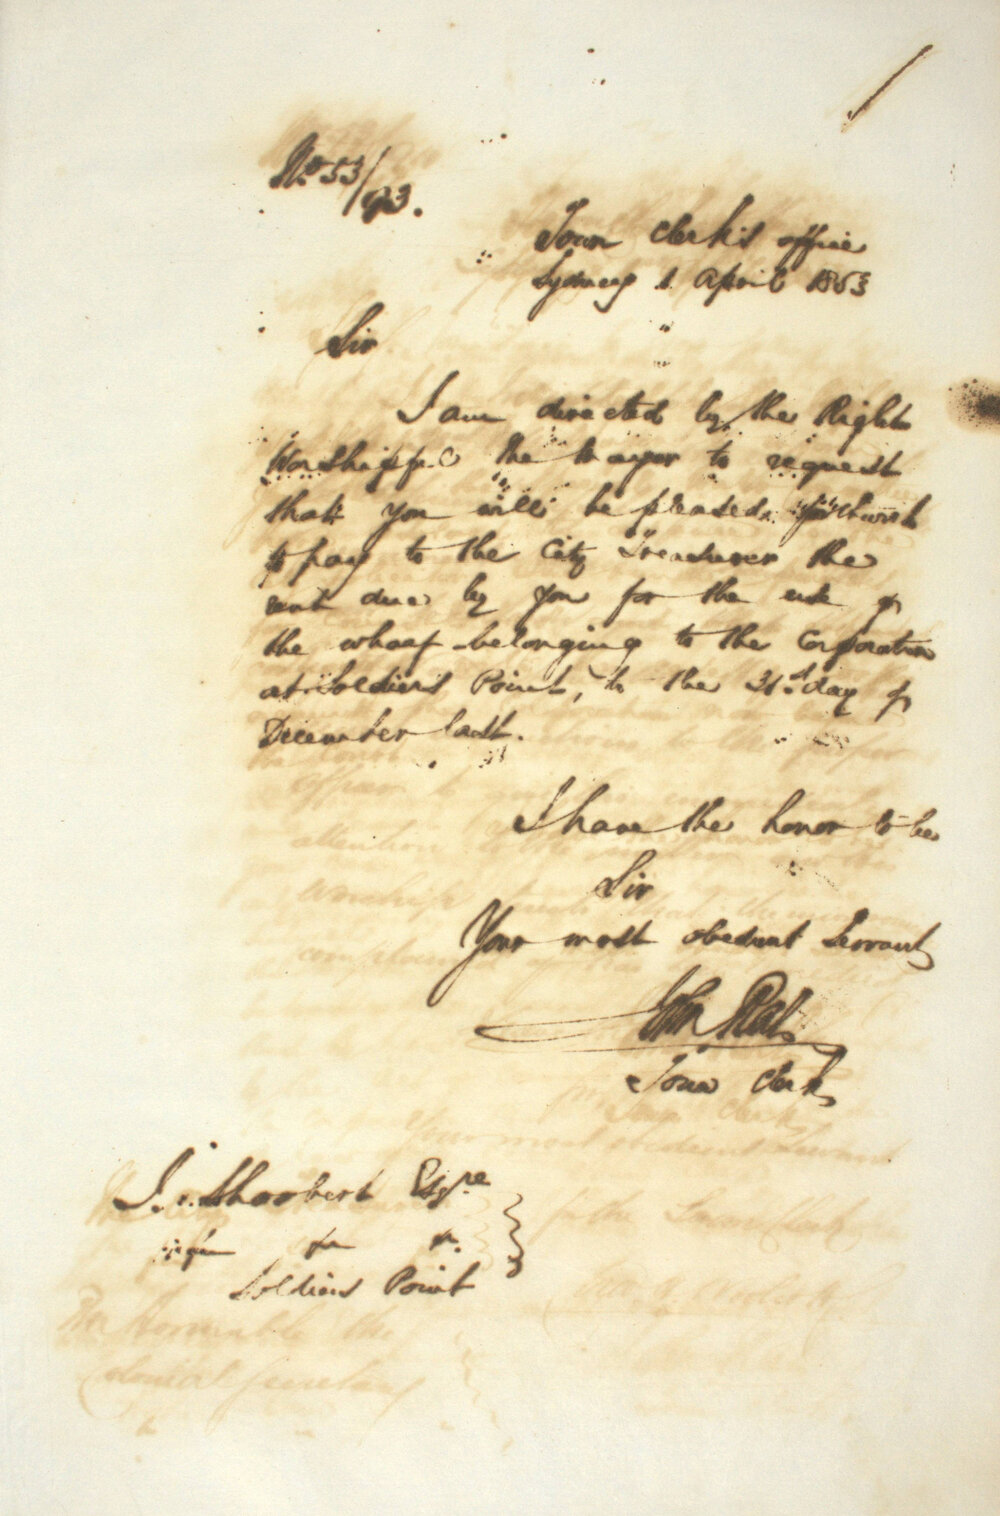 No 53/93.
Town Clerk's office
Sydney 1 April 1853
Sir
I am directed by the Right
Worshipful the Mayor to request
that you will be pleased forthwith
to pay to the City Treasurer the
rent due by you for the use of
the wharf belonging to the Corporation
at Soldiers Point, to the 31st day of
December last.
I have the honor to be
Sir
Your most obedient Servant
John Rae
Town Clerk
J. Shoobert Esqre
Soldiers Point